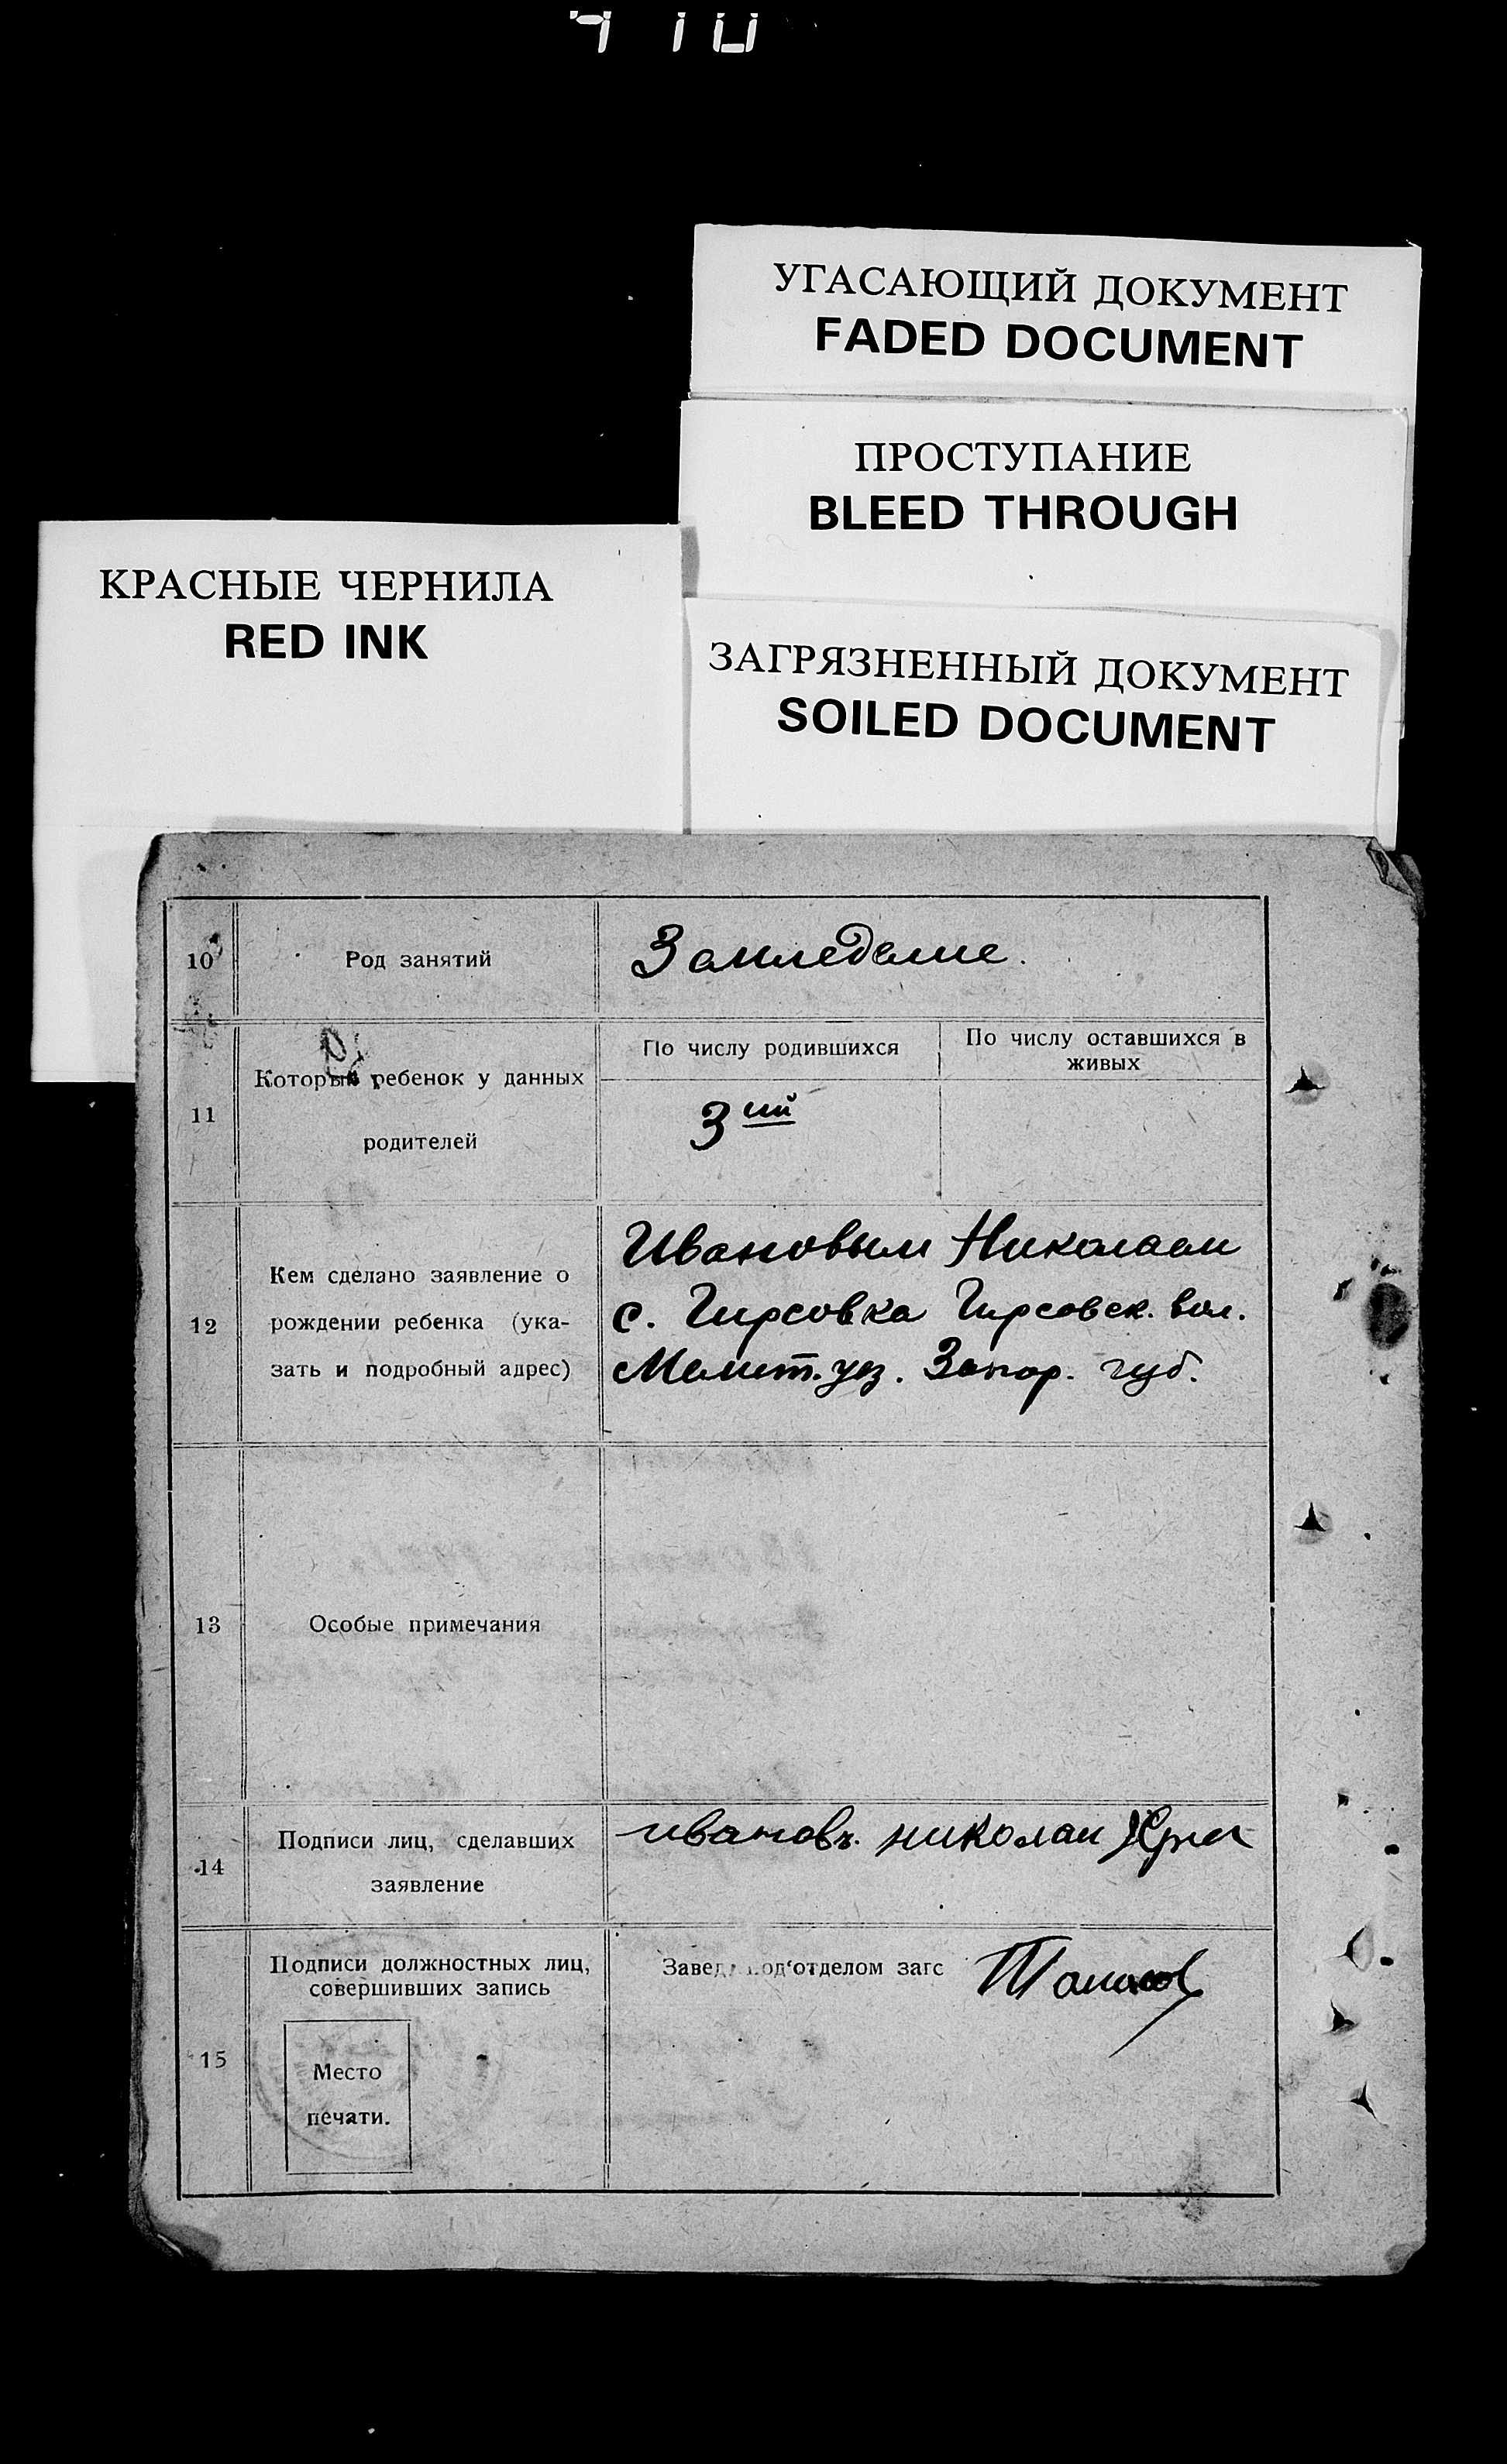 УГАСАЮЩИЙ ДОКУМЕНТ
FADED DOCUMENT
ПРОСТУПАНИЕ
BLEED THROUGH
КРАСНЫЕ ЧЕРНИЛА
RED INK
ЗАГРЯЗНЕННЫЙ ДОКУМЕНТ
SOILED DOCUMENT
10 Род занятий Земледелие.
По числу родившихся По числу оставшихся в
живых
Который ребенок у данных
11 3ий
родителей
Ивановым Николаем
Кем сделано заявление о
с. Гирсовка Гирсовск. вол.
12 рождении ребенка (ука-
зать и подробный адрес) Мелит. уез. Запор. губ.
13 Особые примечания
Подписи лиц, сделавших ивановъ николаи
14
заявление
Подписи должностных лиц, Завед. под'отделом загс
совершивших запись
15 Место
печати.